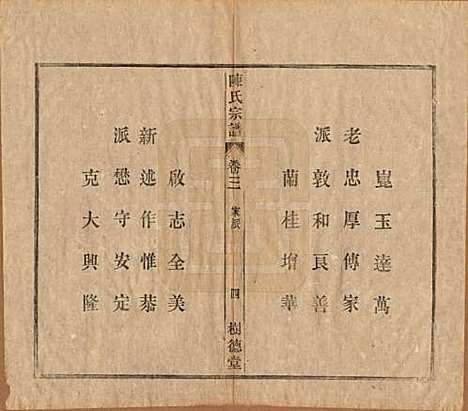 崑玉達萬
老忠厚傳家
派敦和良善
蘭桂增華
陳氏宗譜
卷三
家派
四
樹德堂
啟志全美
新述作惟恭
派懋守安定
克大興隆